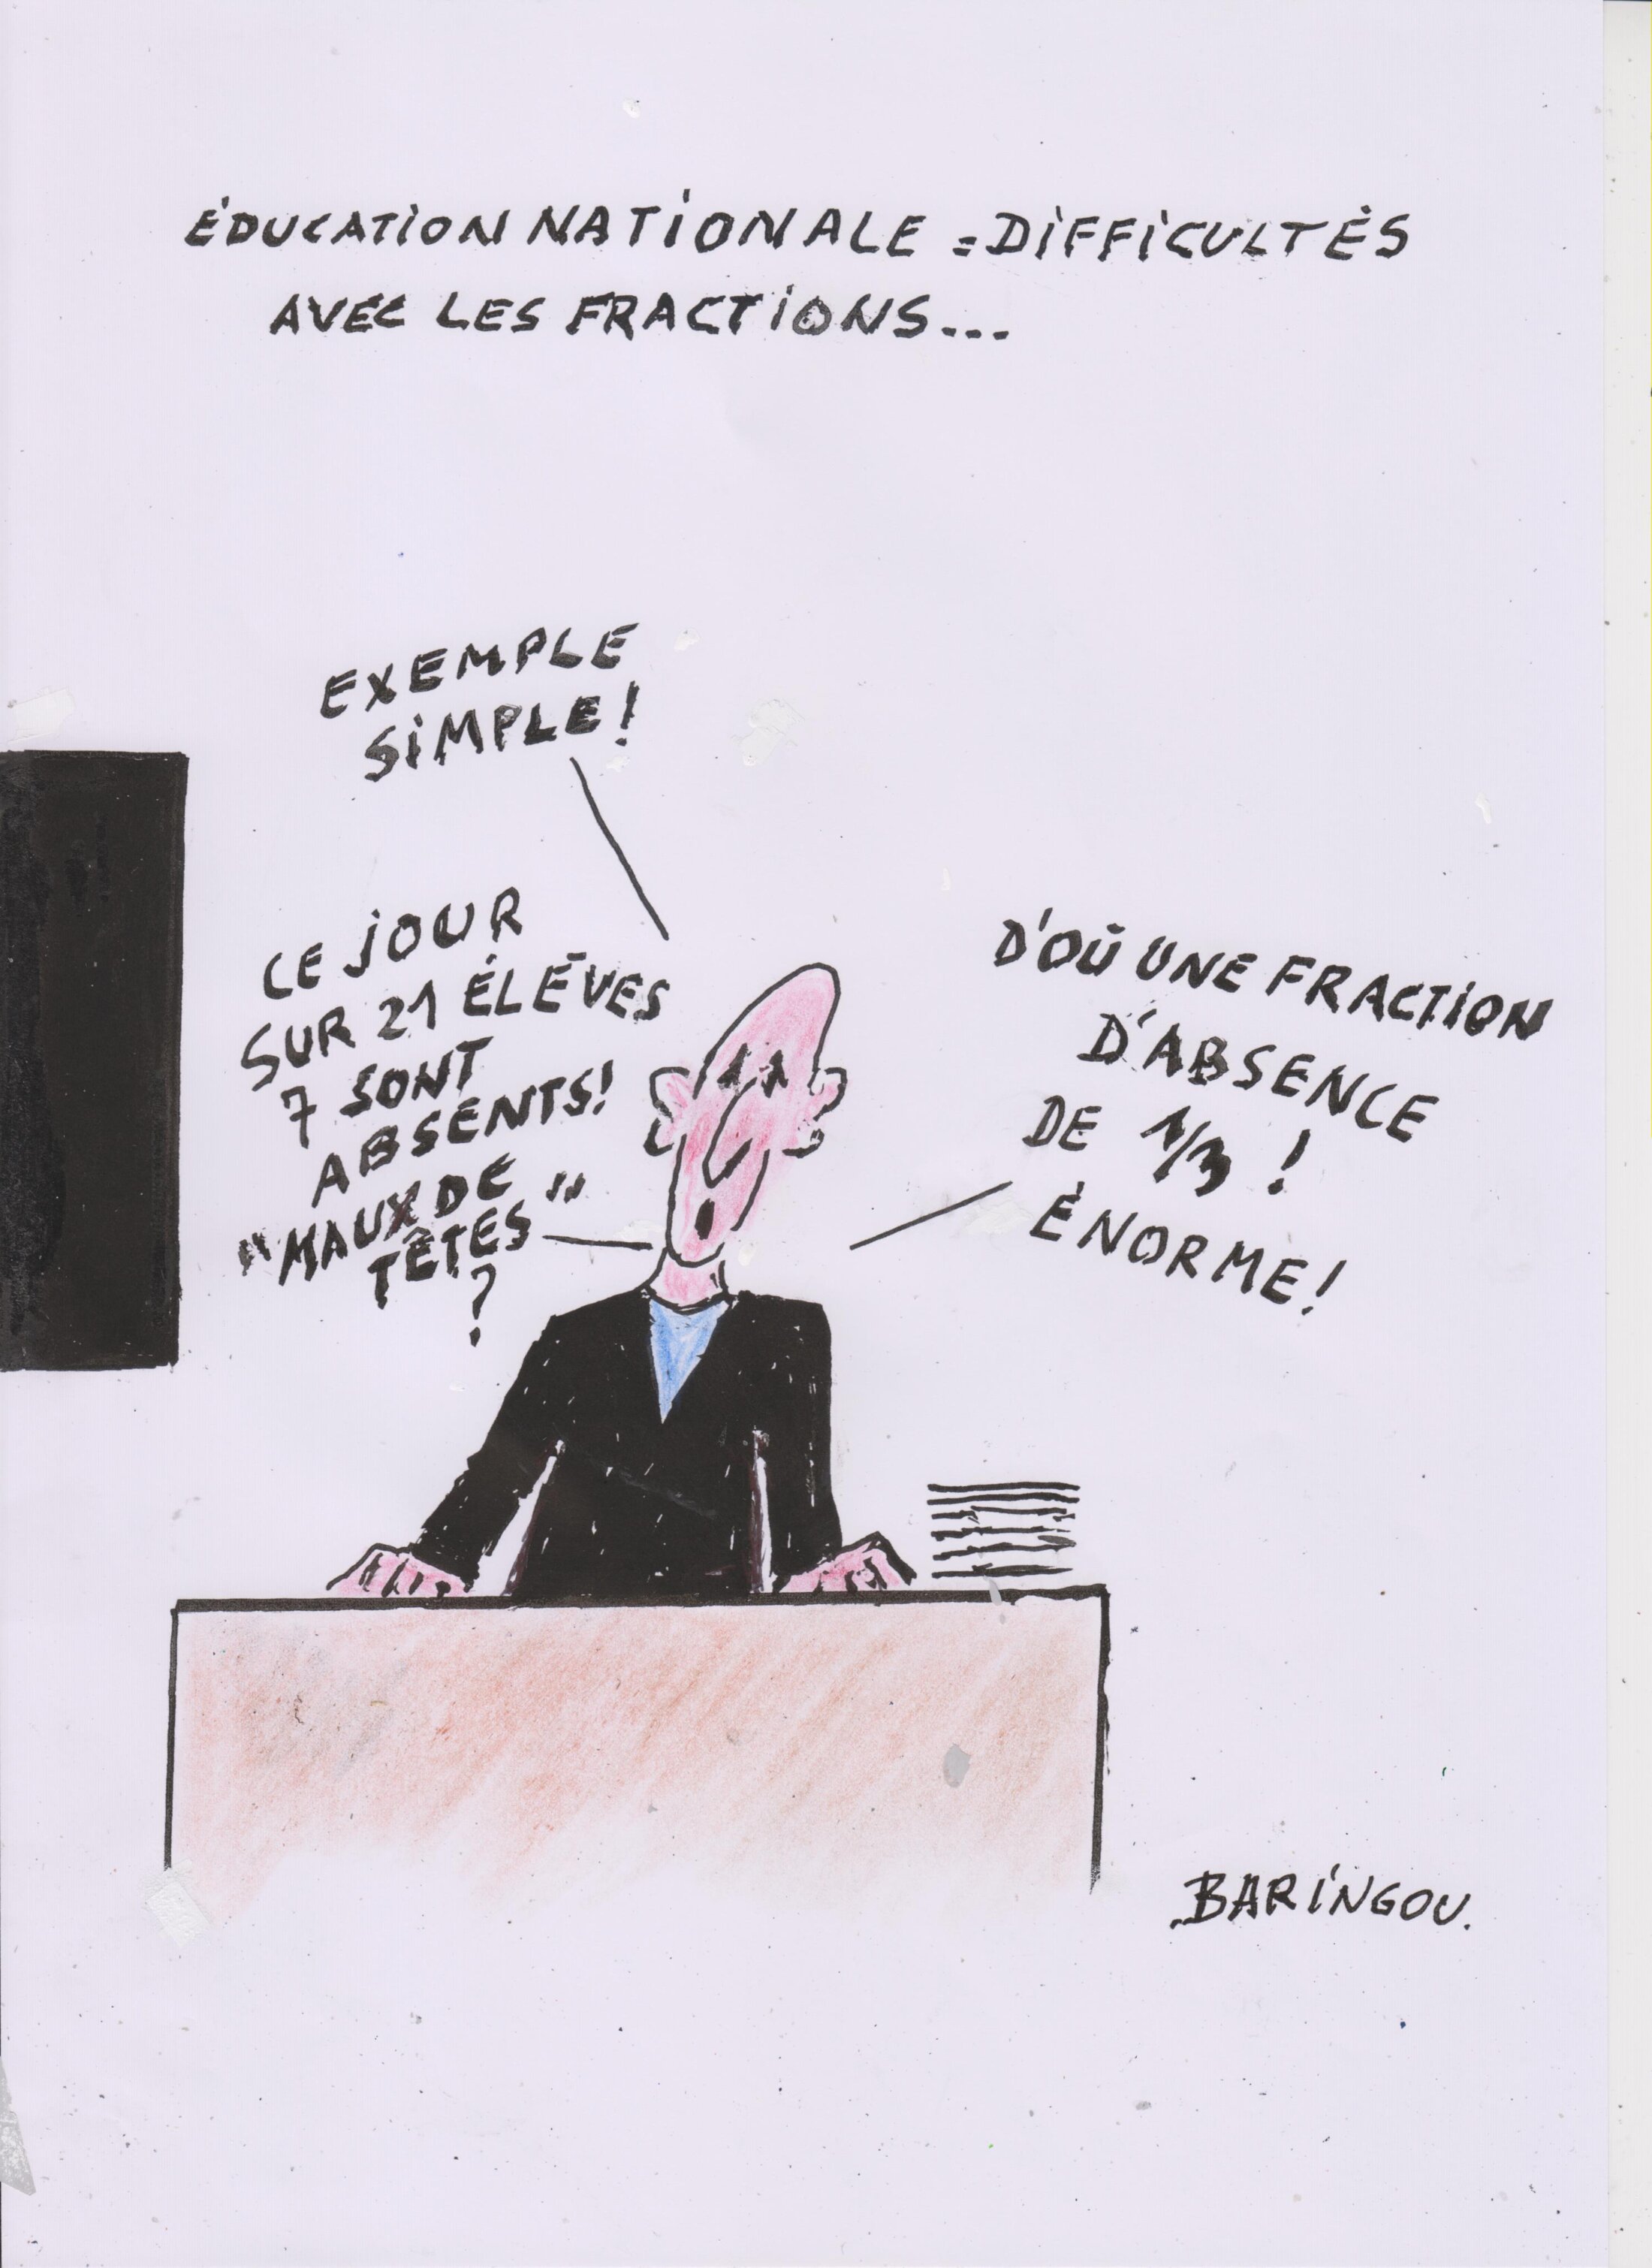 ÉDUCATION NATIONALE = DIFFICULTÉS
AVEC LES FRACTIONS...
EXEMPLE
SIMPLE!
CE JOUR
SUR 21 ÉLÈVES
7 SONT
ABSENTS!
"MAUX DE
TÊTES"
?
D'OÙ UNE FRACTION
D'ABSENCE
DE 1/3 !
ÉNORME!
BARINGOU.